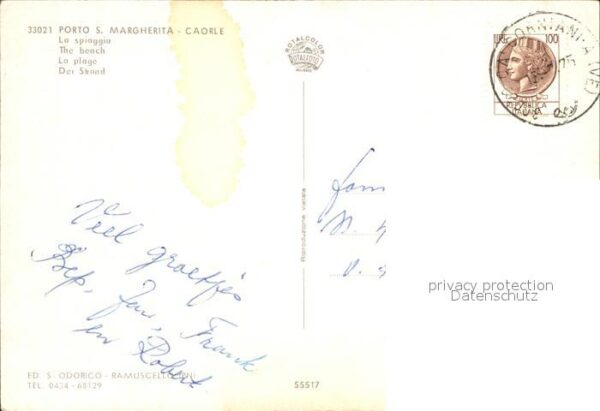 33021 PORTO S. MARGHERITA - CAORLE
La spiaggia
The beach
La plage
Der Strand
ROTALCOLOR
ROTALFOTO
MILANO
LIRE 100
REPUBBLICA
ITALIANA
Riproduzione vietata
Fam
Veel groetjes
Bep, Jan, Frank
en Robert
privacy protection
Datenschutz
ED. S. ODORICO - RAMUSCELLO (PN)
TEL. 0434 - 68129
55517